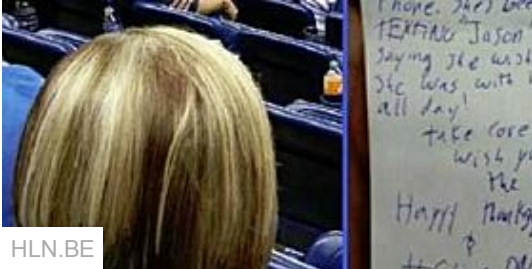 Phone. She's bee
TEXTING Jason
Saying she wish
She was with
all day!
take care
wish yo
the
Happy Thanksg
HLN.BE